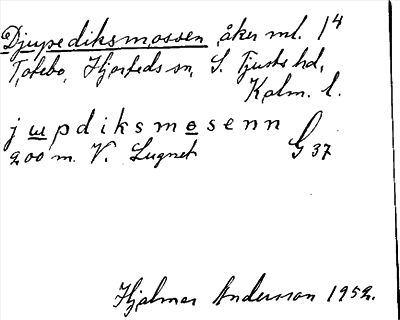 Djupediksmossen åker ml. 1⁴
Totebo, Hjorteds sn, S. Tjusts hd,
Kalm. l.
jupdiksmosenn
200 m. V. Lugnet G 37
Hjalmar Andersson 1952.